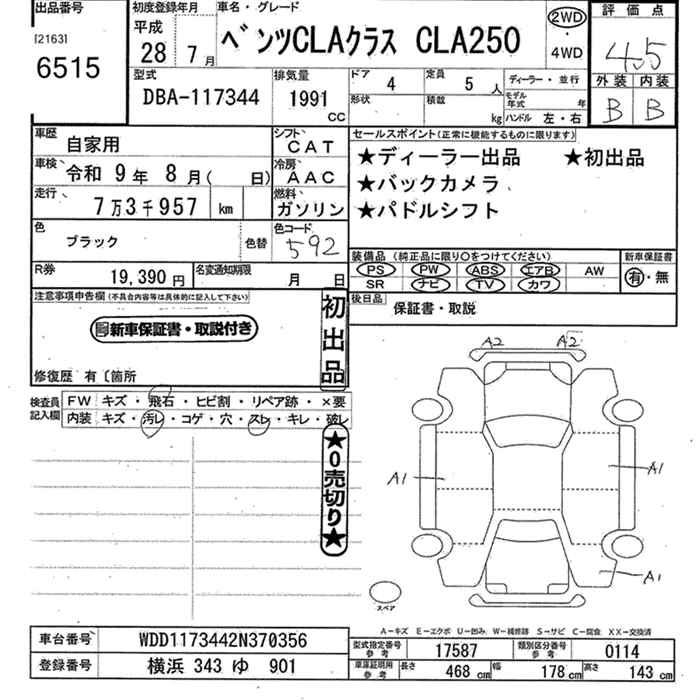 出品番号
[2163]
6515
初度登録年月
平成
28年 7月
車名・グレード
ベンツCLAクラス CLA250
2WD
・
4WD
評価点
4.5
外装 内装
B B
型式
DBA-117344
排気量
1991
CC
ドア
4
定員
5 人
形状
積載
kg
ディーラー・並行
モデル年式 年
ハンドル 左・右
車歴
自家用
シフト
CAT
車検
令和 9年 8月( 日)
冷房
AAC
走行
7万3千957 km
燃料
ガソリン
色
ブラック
色替
色コード
592
R券
19,390円
名変通知期限
月 日
セールスポイント(正常に機能するものに限ります)
★ディーラー出品 ★初出品
★バックカメラ
★パドルシフト
装備品(純正品に限り○をつけてください)
PS PW ABS エアB AW
SR ナビ TV カワ
新車保証書
有・無
後日品
保証書・取説
注意事項申告欄(不具合内容等は具体的に記入して下さい)
新車保証書・取説付き
初出品
修復歴 有〔箇所
検査員記入欄
FW キズ・飛石・ヒビ割・リペア跡・×要
内装 キズ・汚レ・コゲ・穴・スレ・キレ・破レ
★0売切り★
A2 A2
A1 A1
A1
スペア
A―キズ E―エクボ U―凹み W―補修跡 S―サビ C―腐食 XX―交換済
車台番号
WDD1173442N370356
登録番号
横浜 343 ゆ 901
型式指定番号
参考
17587
類別区分番号
参考
0114
車庫証明用
参考
長さ 468 cm 幅 178 cm 高さ 143 cm